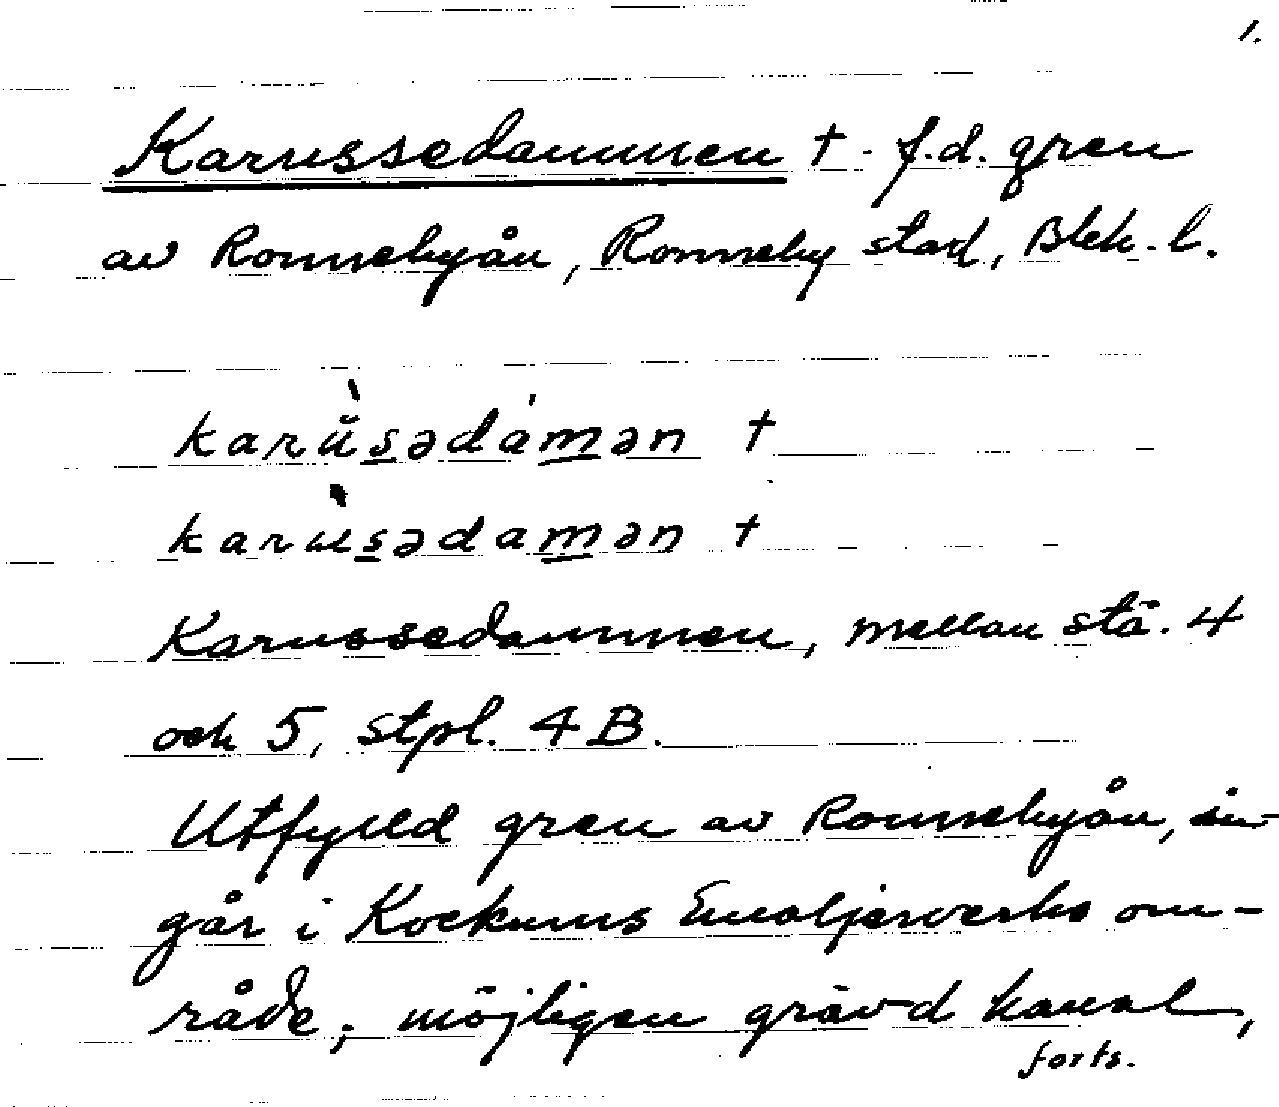 1.
Karussedammen † - f.d. gren
av Ronnebyån, Ronneby stad, Blek. l.
karùsədámən †
karùsədamən †
Karussedammen, mellan stä. 4
och 5, stpl. 4B.
Utfylld gren av Ronnebyån, in-
går i Kockums Emaljerverks om-
råde; möjligen grävd kanal,
forts.